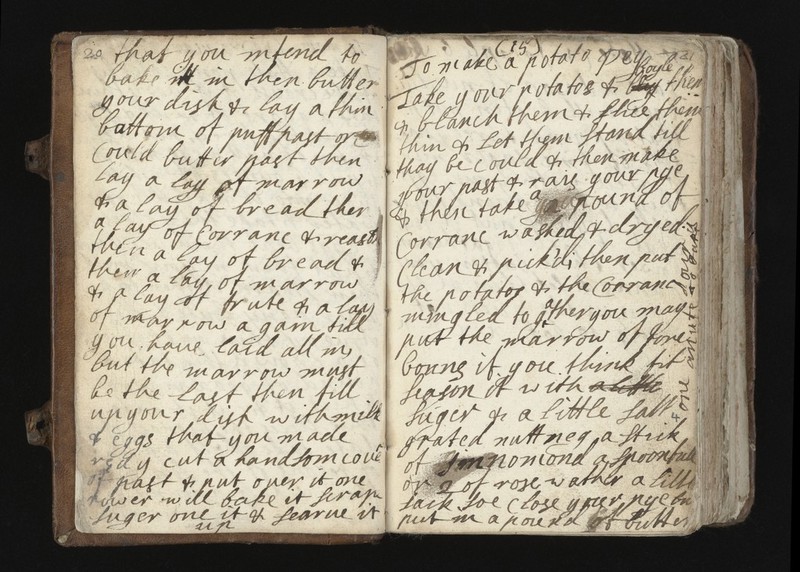 20
that you intend to
bake in then butter
your dish & lay a thin
bottom of puff past or
Could butter past then
lay a lay of marrow
& a lay of bread then
a lay of Corranc &
then a lay of bread &
then a lay of marrow
& a lay of frute & a lay
of marrow again till
you have laid all in
but the marrow must
be the last then fill
up your dish with milk
& eggs that you made
redy cut a handsom
of past & put over it one
ower will bake it scrape
suger one it & searve it
up
(15)
21
To make a potato pey
Take your potatos & boyle them
& blanch them & slice them
thin & Let them stand till
thay be could & then make
your past & rais your pye
& then take a pound of
Corranc washed & dryed
Clean & pickd; then put
the potatos & the Corranc
mingled to gather you may
put the marrow of
bouns if you think fit
season it with a little
suger & a little salt
grated nuttmeg a stick
of a spoonfull
or 2 of rose wather a little
sack soe close your pye
put in a pound of butter